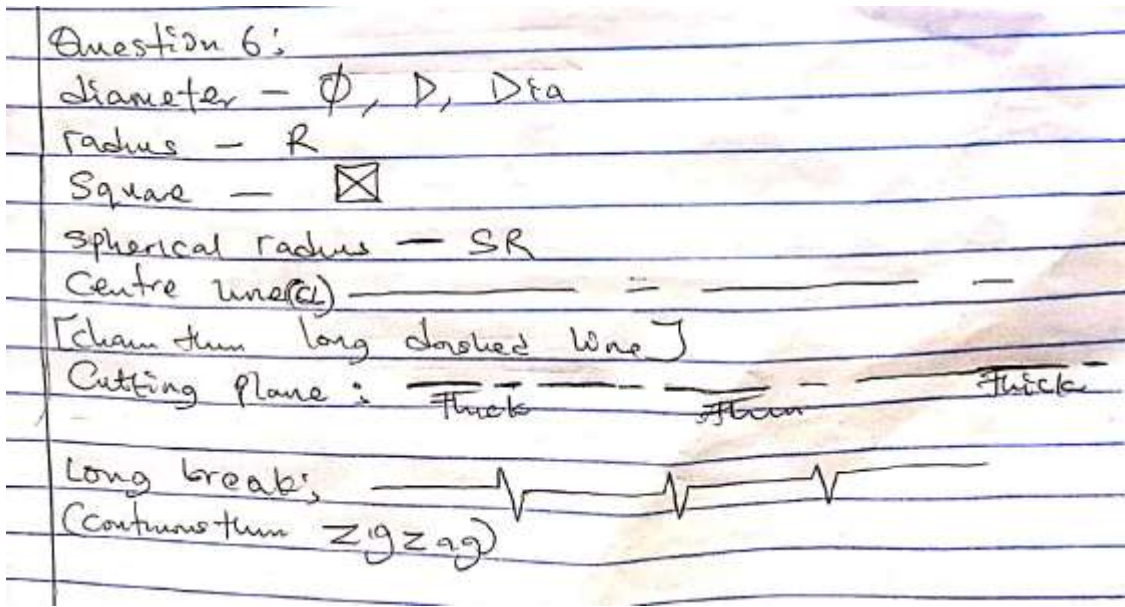 Question 6:
diameter - Ø, D, Dia
radius - R
Square -
spherical radius - SR
Centre line(CL)
[chain thin long dashed line]
Cutting plane:
Thick Thin Thick
Long break:
(Continuous thin zigzag)